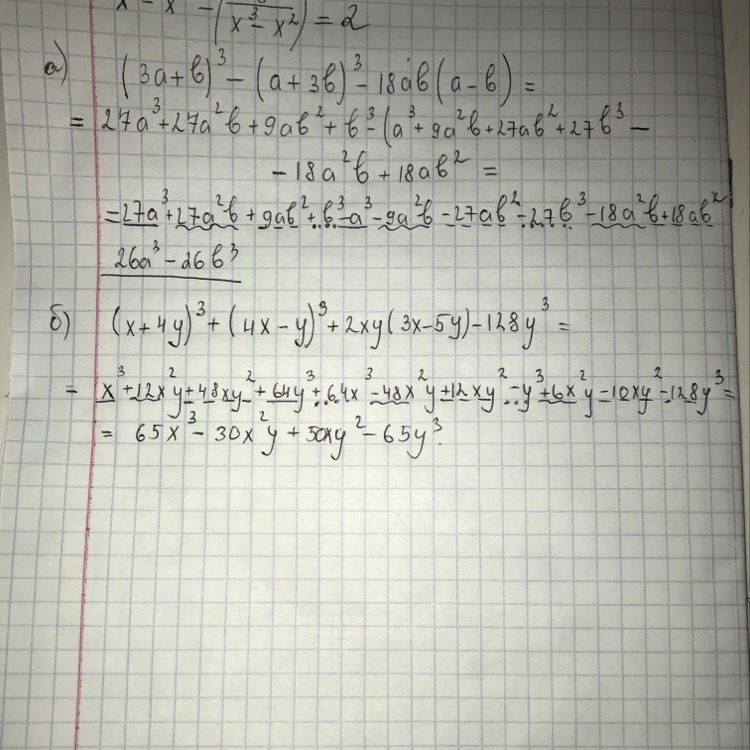 x³ - x²) = 2
а) (3a+b)³ - (a+3b)³ - 18ab(a-b) =
= 27a³+27a²b+9ab²+b³-(a³+9a²b+27ab²+27b³ -
- 18a²b + 18ab² =
=27a³+27a²b+9ab²+b³-a³-9a²b-27ab²-27b³-18a²b+18ab²
26a³ - 26b³
б) (x+4y)³+(4x-y)³+2xy(3x-5y)-128y³ =
= x³+12x²y+48xy²+64y³+64x³-48x²y+12xy²-y³+6x²y-10xy²-128y³=
= 65x³-30x²y+50xy²-65y³.